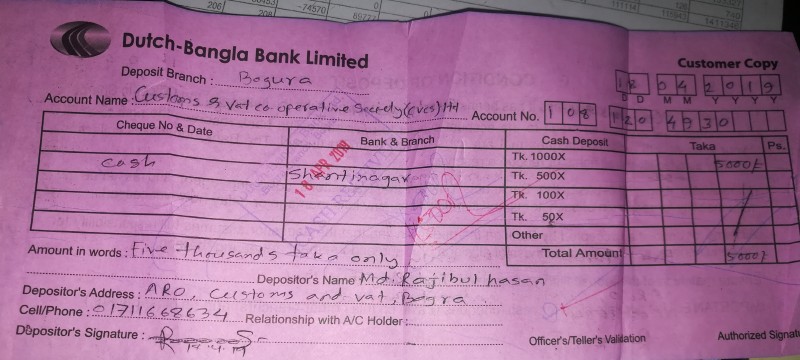 Dutch-Bangla Bank Limited
Customer Copy
Deposit Branch : Bogura
18 04 2019
D D M M Y Y Y Y
Account Name : Customs & Vat co-operative (cvcs) ltd
Account No. 108 120 4930
Cheque No & Date Bank & Branch Cash Deposit Taka Ps.
cash Tk. 1000X 5000/-
Shantinagar Tk. 500X
18 APR 2019 Tk. 100X
Tk. 50X
Other
Total Amount 5000/-
Amount in words : Five thousands taka only
Depositor's Name Md. Rajibul hasan
Depositor's Address : ARO, Customs and vat, Bogra
Cell/Phone : 01711668634 Relationship with A/C Holder :
Depositor's Signature : Officer's/Teller's Validation